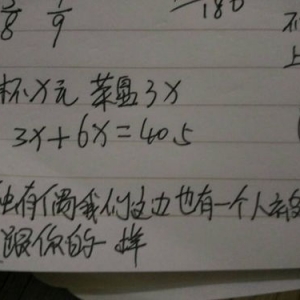 8 9 180 不
上
杯x元 菜盘3x
3x+6x=40.5
有偶我们这边也有一个人
跟你的一样